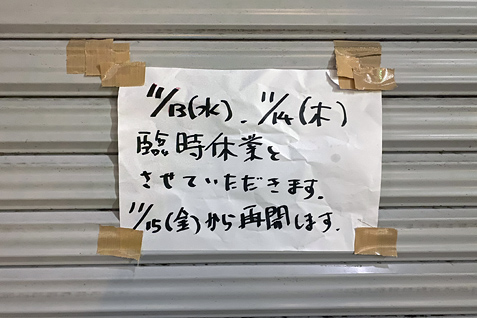 11/13(水)、11/14(木)
臨時休業を
させていただきます.
11/15(金)から再開します.